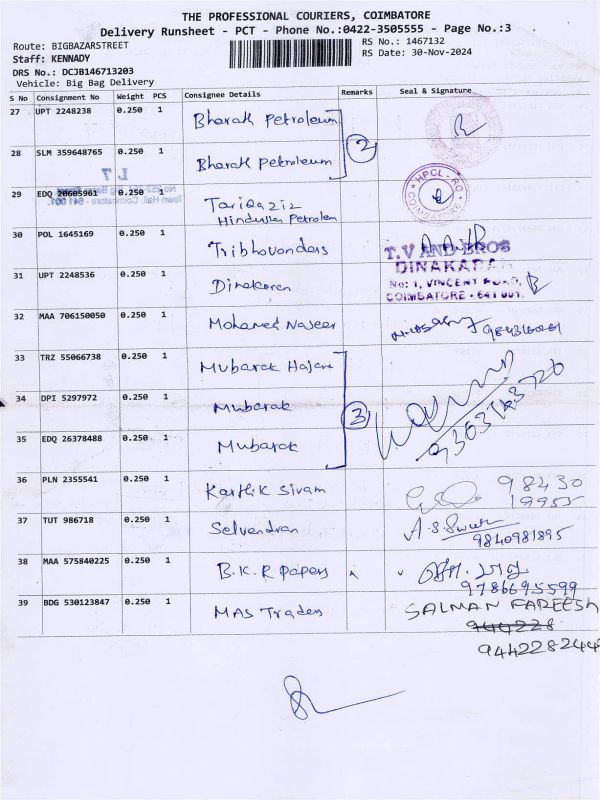 THE PROFESSIONAL COURIERS, COIMBATORE
Delivery Runsheet - PCT - Phone No.:0422-3505555 - Page No.:3
Route: BIGBAZARSTREET
Staff: KENNADY
DRS No.: DCJB146713203
Vehicle: Big Bag Delivery
RS No.: 1467132
RS Date: 30-Nov-2024
S No Consignment No Weight PCS Consignee Details Remarks Seal & Signature
27 UPT 2248238 0.250 1 Bharat Petroleum
2
28 SLM 359648765 0.250 1 Bharat Petroleum
HPCL-CO
COIMBATORE
29 EDQ 20605961 0.250 1 Tariqaziz
Hindustan Petrolem
30 POL 1645169 0.250 1 Tribhovandas
T.V AND BROS
31 UPT 2248536 0.250 1 Dinakaran
DINAKARAN
No: 1, VINCENT ROAD,
COIMBATORE - 641 001.
32 MAA 706150050 0.250 1 Mohamed Naseer
33 TRZ 55066738 0.250 1 Mubarak Hajara
34 DPI 5297972 0.250 1 Mubarak
3
35 EDQ 26378488 0.250 1 Mubarak
36 PLN 2355541 0.250 1 Karthik Sivam 98430
19955
37 TUT 986718 0.250 1 Selvendran
9840981895
38 MAA 575840225 0.250 1 B.K.R Papers
9786695599
39 BDG 530123847 0.250 1 MAS Traders SALMAN FAREESH
944228
9442282442